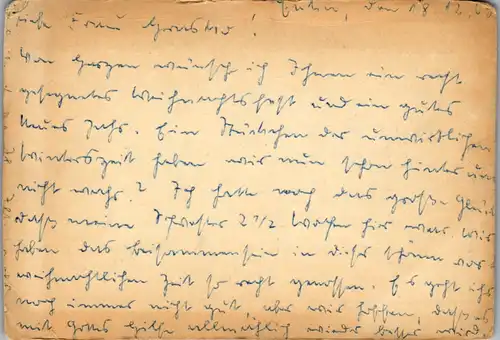 Eutin, den 18.12.
Liebe Frau !
Von Herzen wünsch ich Ihnen ein recht
gesegnetes Weihnachtsfest und ein gutes
neues Jahr. Ein Stückchen der unwirtlichen
Winterszeit haben wir nun schon hinter uns
nicht wahr? Ich hatte noch das große Glück
daß meine Schwester 2 1/2 Wochen hier war. Wir
haben das Beisammensein in dieser schönen vor-
weihnachtlichen Zeit so recht genossen. Es geht ihr
noch immer nicht gut, aber wir hoffen, daß es
mit Gottes Hilfe allmählich wieder besser wird.